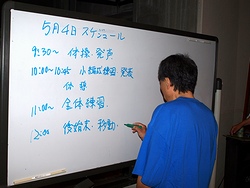 5月4日 スケジュール
9:30〜 体操・発声
10:00〜10:45 小編成練習 発表
休憩
11:00〜 全体練習
12:00 後始末・移動